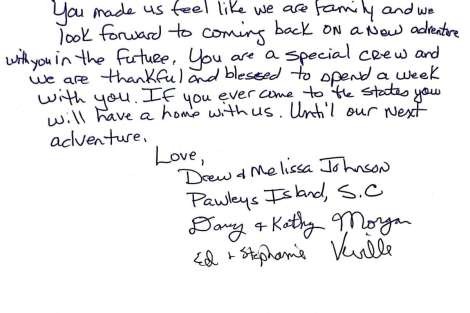 You made us feel like we are family and we
look forward to coming back on a new adventure
with you in the future. You are a special crew and
we are thankful and blessed to spend a week
with you. If you ever come to the states you
will have a home with us. Until our next
adventure.
Love,
Drew & Melissa Johnson
Pawleys Island, S.C
Danny & Kathy Morgan
Ed + Stephanie